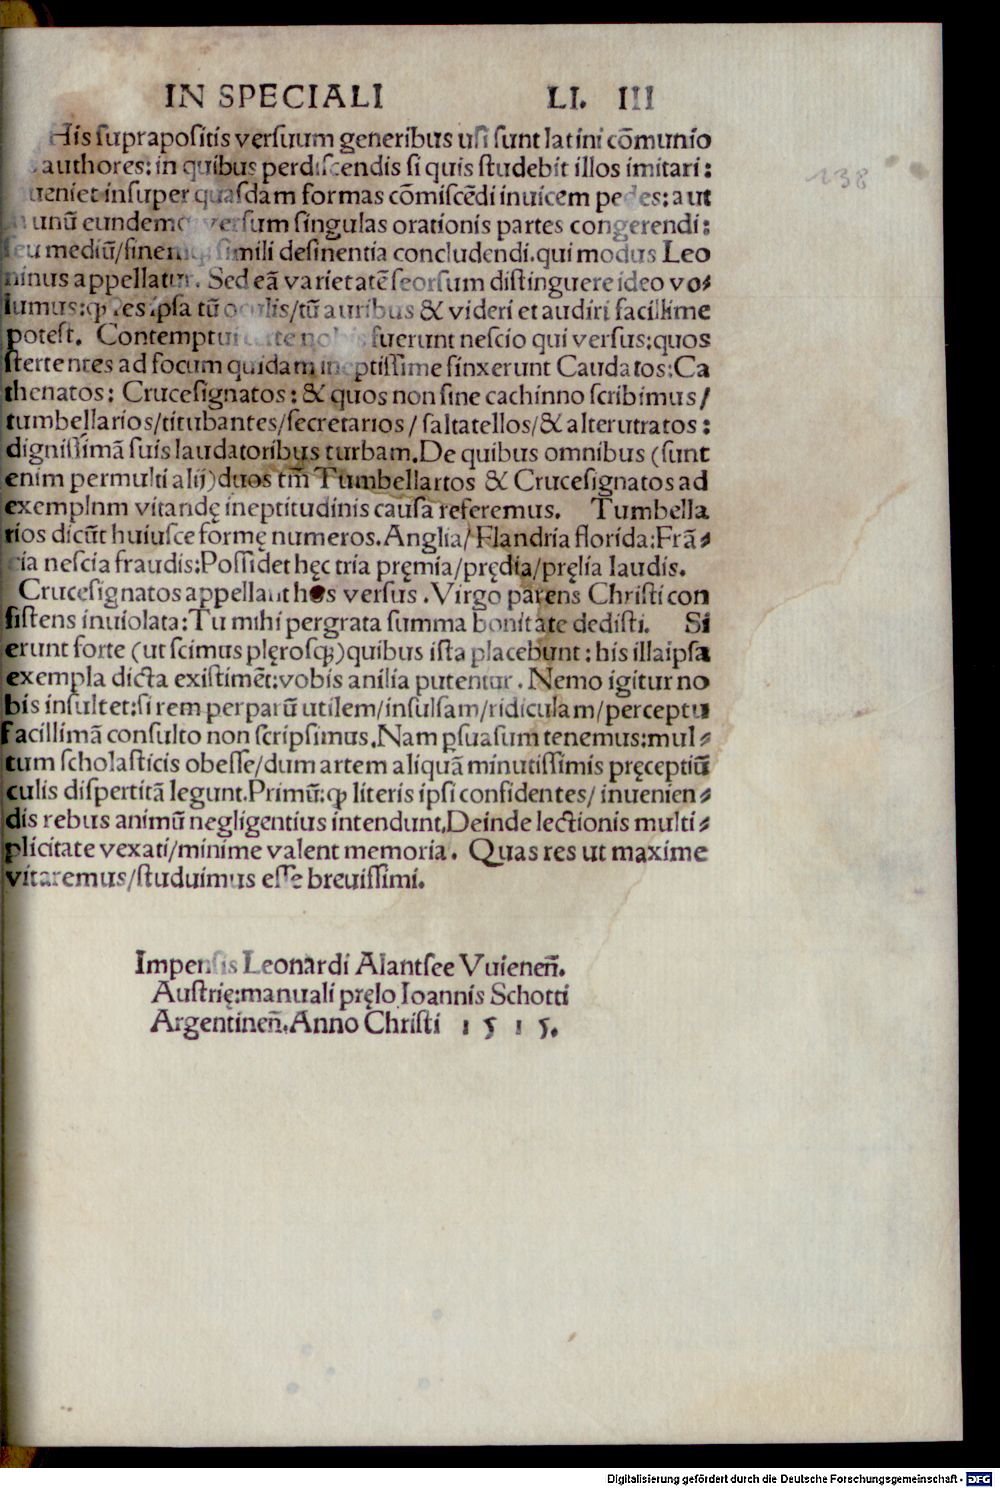 IN SPECIALI LI. III
138
His suprapositis versuum generibus usi sunt latini cōmunio
authores: in quibus perdiscendis si quis studebit illos imitari:
ueniet insuper quasdam formas cōmiscēdi inuicem pedes: aut
unū eundemq versum singulas orationis partes congerendi:
seu mediū/finemq simili desinentia concludendi.qui modus Leo
ninus appellatur. Sed eā varietatē seorsum distinguere ideo vo⸗
lumus:ꝙ res ipsa tū oculis/tū auribus & videri et audiri facillime
potest. Contemptui certe nobis fuerunt nescio qui versus:quos
stertentes ad focum quidam ineptissime finxerunt Caudatos:Ca
thenatos: Crucesignatos: & quos non sine cachinno scribimus/
tumbellarios/titubantes/secretarios/saltatellos/& alterutratos:
dignissimā suis laudatoribus turbam.De quibus omnibus (sunt
enim permulti alij) duos tm̄ Tumbellartos & Crucesignatos ad
exemplnm vitandę ineptitudinis causa referemus. Tumbella
rios dicūt huiusce formę numeros.Anglia/Flandria florida:Frā⸗
cia nescia fraudis:Possidet hęc tria pręmia/prędia/pręlia laudis.
Crucesignatos appellant hos versus .Virgo parens Christi con
sistens inuiolata:Tu mihi pergrata summa bonitate dedisti. Si
erunt forte (ut scimus plęrosꝗ)quibus ista placebunt: his illa ipsa
exempla dicta existimēt:vobis anilia putentur. Nemo igitur no
bis insultet:si rem per parū utilem/insulsam/ridiculam/perceptu
facillimā consulto non scripsimus.Nam ꝑsuasum tenemus:mul⸗
tum scholasticis obesse/dum artem aliquā minutissimis pręceptiū
culis dispertitā legunt.Primū:ꝙ literis ipsi confidentes/ inuenien⸗
dis rebus animū negligentius intendunt.Deinde lectionis multi⸗
plicitate vexati/minime valent memoria. Quas res ut maxime
vitaremus/studuimus esse breuissimi.
Impensis Leonardi Alantsee Vuieneñ.
Austrię:manuali pręlo Ioannis Schotti
Argentineñ.Anno Christi 1515.
Digitalisierung gefördert durch die Deutsche Forschungsgemeinschaft - DFG